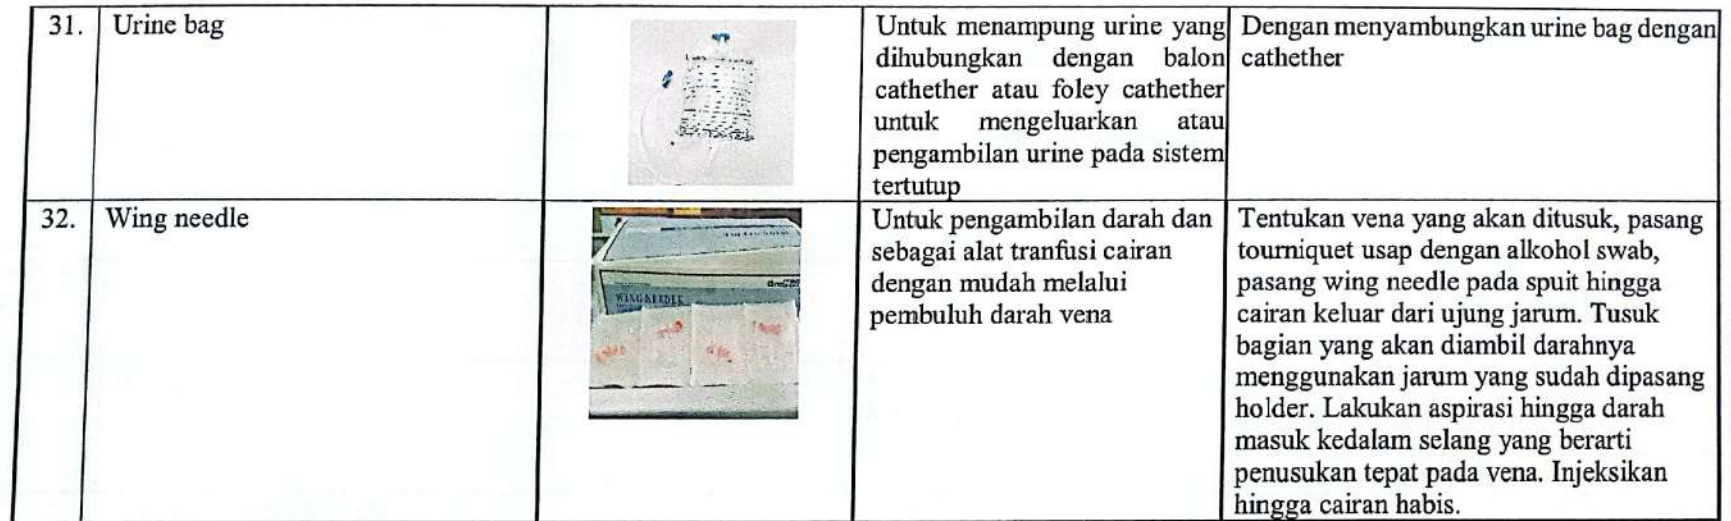 31.
Urine bag
Untuk menampung urine yang
dihubungkan dengan balon
cathether atau foley cathether
untuk mengeluarkan atau
pengambilan urine pada sistem
tertutup
Dengan menyambungkan urine bag dengan
cathether
32.
Wing needle
WING NEEDLE
Untuk pengambilan darah dan
sebagai alat tranfusi cairan
dengan mudah melalui
pembuluh darah vena
Tentukan vena yang akan ditusuk, pasang
tourniquet usap dengan alkohol swab,
pasang wing needle pada spuit hingga
cairan keluar dari ujung jarum. Tusuk
bagian yang akan diambil darahnya
menggunakan jarum yang sudah dipasang
holder. Lakukan aspirasi hingga darah
masuk kedalam selang yang berarti
penusukan tepat pada vena. Injeksikan
hingga cairan habis.